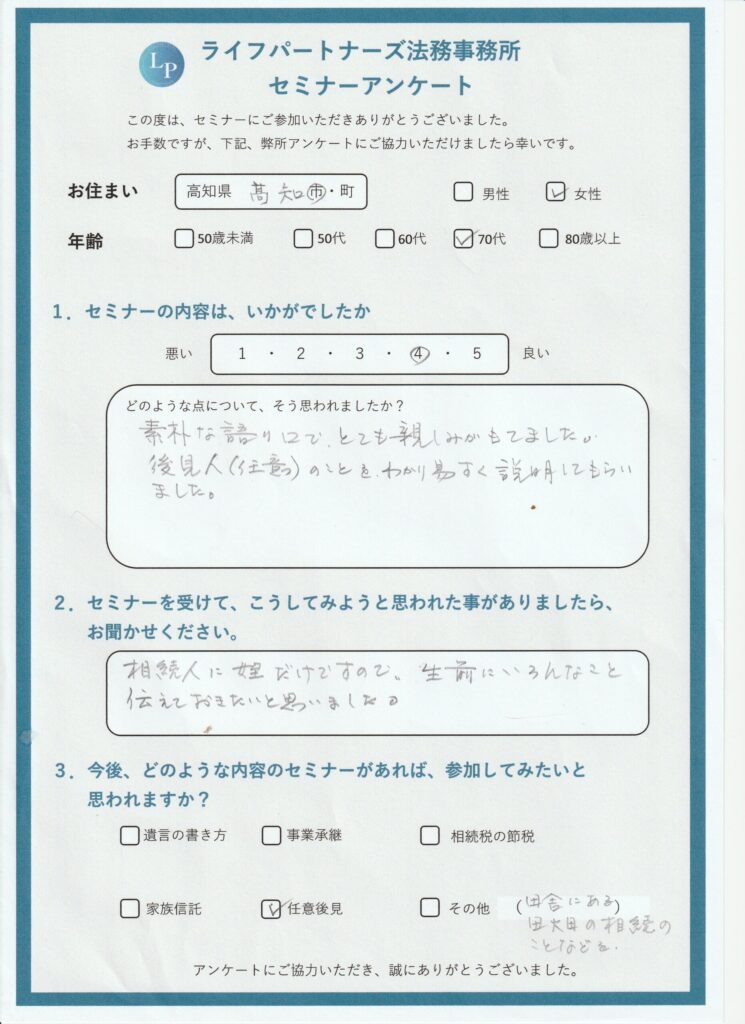 LP
ライフパートナーズ法務事務所
セミナーアンケート
この度は、セミナーにご参加いただきありがとうございました。
お手数ですが、下記、弊所アンケートにご協力いただけましたら幸いです。
お住まい 高知県 高知 市・町 男性 女性
年齢 50歳未満 50代 60代 70代 80歳以上
1．セミナーの内容は、いかがでしたか
悪い 1 ・ 2 ・ 3 ・ 4 ・ 5 良い
どのような点について、そう思われましたか？
素朴な語り口で、とても親しみがもてました。
後見人(任意の)のことを、わかり易すく説明してもらい
ました。
2．セミナーを受けて、こうしてみようと思われた事がありましたら、
お聞かせください。
相続人に姪だけですので、生前にいろんなこと
伝えておきたいと思いました。
3．今後、どのような内容のセミナーがあれば、参加してみたいと
思われますか？
遺言の書き方 事業承継 相続税の節税
家族信託 任意後見 その他 (田舎にある)
の相続の
ことなどを.
アンケートにご協力いただき、誠にありがとうございました。